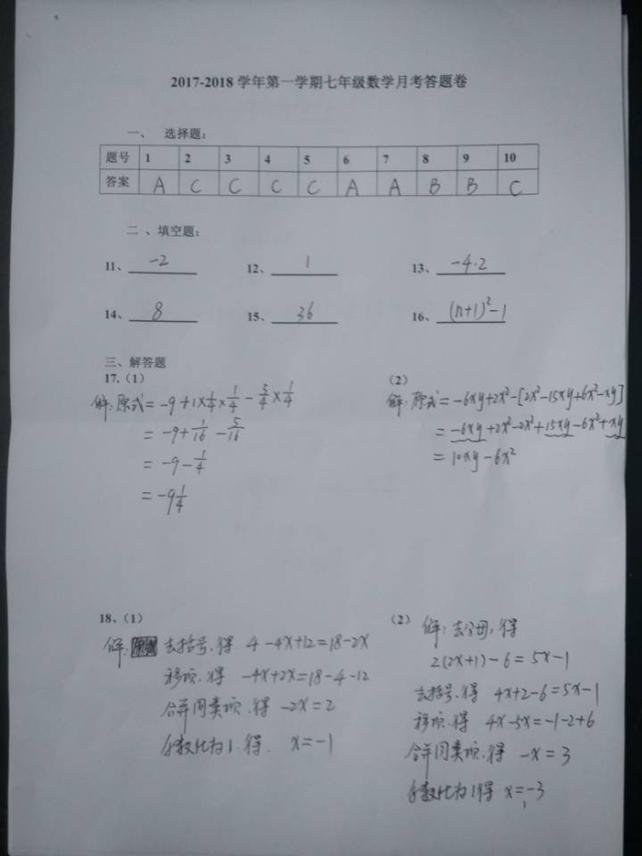 2017-2018 学年第一学期七年级数学月考答题卷
一、 选择题:
题号 1 2 3 4 5 6 7 8 9 10
答案 A C C C C A A B B C
二 、填空题:
11、 -2 12、 1 13、 -4.2
14、 8 15、 36 16、 (n+1)²-1
三、解答题
17.（1）
解:原式=-9+1×1/4×1/4-5/4×1/4
=-9+1/16-5/16
=-9-1/4
=-9 1/4
（2）
解:原式=-6xy+2x²-[2x²-15xy+6x²-xy]
=-6xy+2x²-2x²+15xy-6x²+xy
=10xy-6x²
18、（1）
解: 去括号,得 4-4x+12=18-2x
移项,得 -4x+2x=18-4-12
合并同类项,得 -2x=2
系数化为1,得, x=-1
（2）
解:去分母,得
2(2x+1)-6=5x-1
去括号,得 4x+2-6=5x-1
移项,得 4x-5x=-1-2+6
合并同类项,得 -x=3
系数化为1得 x=-3